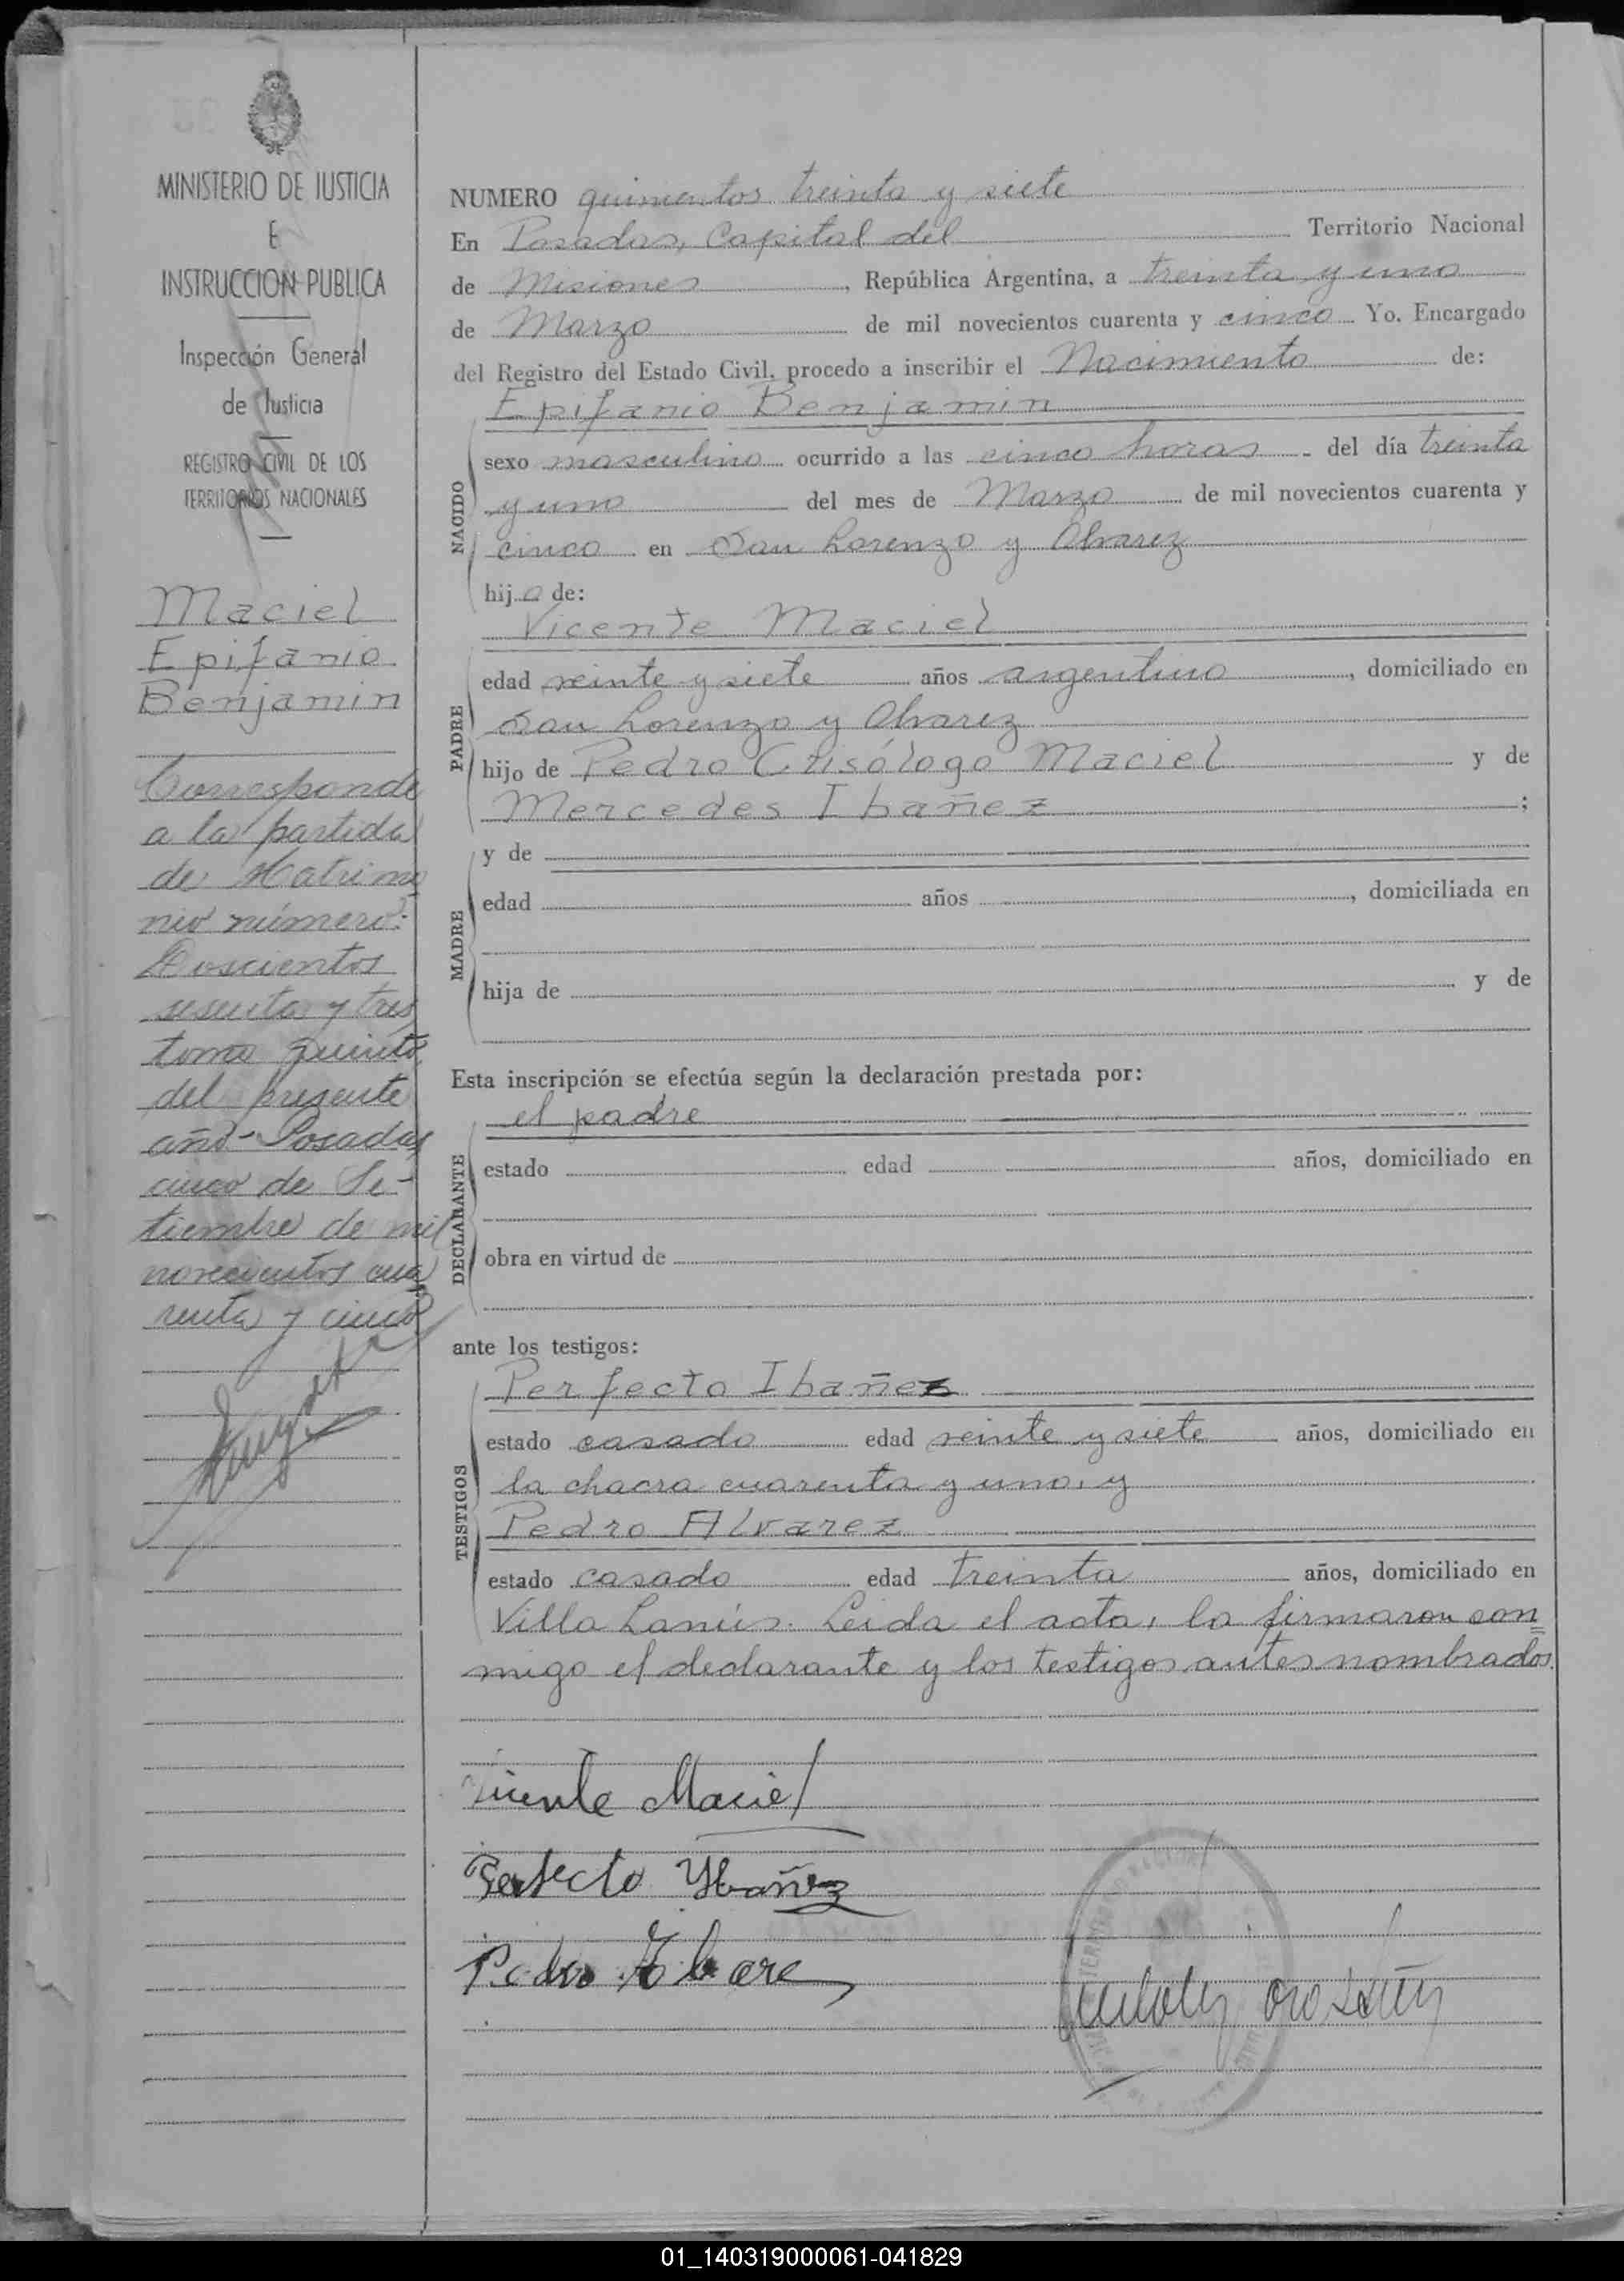 MINISTERIO DE JUSTICIA
E
INSTRUCCION PUBLICA
Inspección General
de Justicia
REGISTRO CIVIL DE LOS
TERRITORIOS NACIONALES
Maciel
Epifanio
Benjamin
Corresponde
a la partida
de Matrimo
nio número:
Doscientos
sesenta y tres
tomo quinto
del presente
año - Posadas
cinco de Se-
tiembre de mil
novecientos cua
renta y cinco
NUMERO quinientos treinta y siete
En Posadas, Capital del Territorio Nacional
de Misiones, República Argentina, a treinta y uno
de Marzo de mil novecientos cuarenta y cinco Yo, Encargado
del Registro del Estado Civil, procedo a inscribir el Nacimiento de:
Epifanio Benjamin
NACIDO
sexo masculino ocurrido a las cinco horas del día treinta
y uno del mes de Marzo de mil novecientos cuarenta y
cinco en San Lorenzo y Alvarez
hijo de:
Vicente Maciel
PADRE
edad veinte y siete años argentino, domiciliado en
San Lorenzo y Alvarez
hijo de Pedro Crisólogo Maciel y de
Mercedes Ibañez;
MADRE
y de
edad años, domiciliada en
hija de y de
Esta inscripción se efectúa según la declaración prestada por:
el padre
DECLARANTE
estado edad años, domiciliado en
obra en virtud de
ante los testigos:
TESTIGOS
Perfecto Ibañez
estado casado edad veinte y siete años, domiciliado en
la chacra cuarenta y uno, y
Pedro Alvarez
estado casado edad treinta años, domiciliado en
Villa Lanús. Leida el acta, la firmaron con
migo el declarante y los testigos antes nombrados.
Vicente Maciel
Perfecto Ybañez
Pedro Albare
01_140319000061-041829